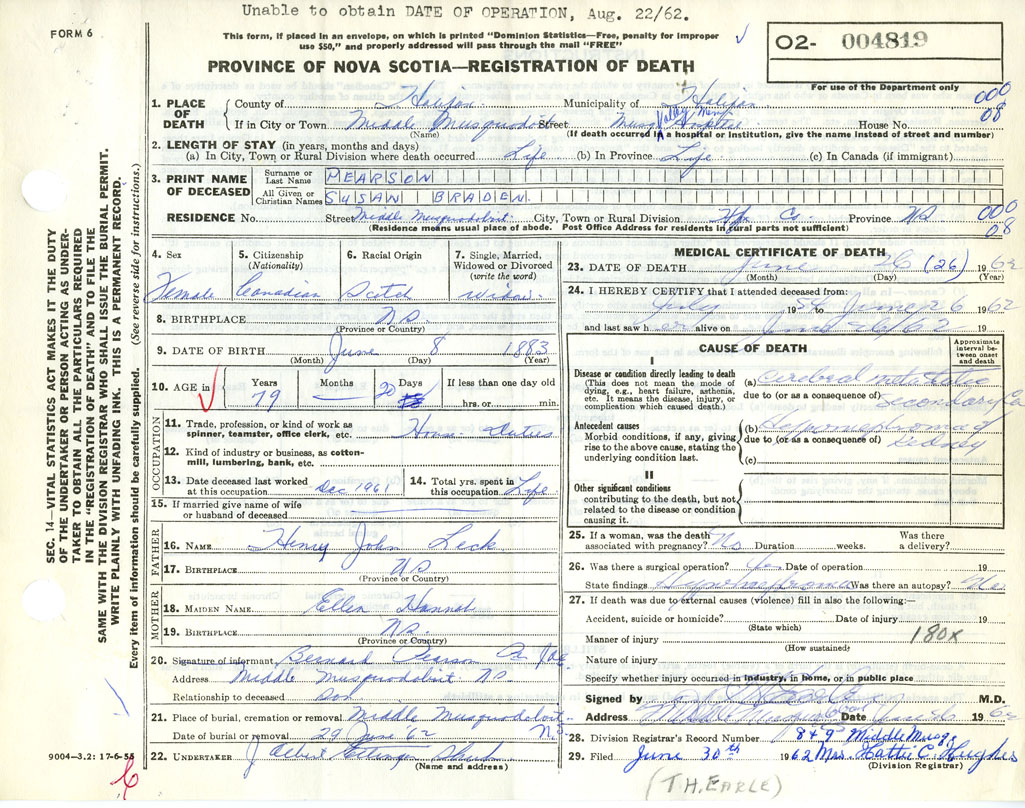 Unable to obtain DATE OF OPERATION, Aug. 22/62.
FORM 6
This form, if placed in an envelope, on which is printed "Dominion Statistics—Free, penalty for improper
use $50," and properly addressed will pass through the mail "FREE"
O2- 004819
PROVINCE OF NOVA SCOTIA—REGISTRATION OF DEATH
For use of the Department only
000
08
SEC. 14—VITAL STATISTICS ACT MAKES IT THE DUTY
OF THE UNDERTAKER OR PERSON ACTING AS UNDER-
TAKER TO OBTAIN ALL THE PARTICULARS REQUIRED
IN THE "REGISTRATION OF DEATH" AND TO FILE THE
SAME WITH THE DIVISION REGISTRAR WHO SHALL ISSUE THE BURIAL PERMIT.
WRITE PLAINLY WITH UNFADING INK. THIS IS A PERMANENT RECORD.
Every item of information should be carefully supplied. (See reverse side for instructions.)
1. PLACE OF DEATH
County of Halifax Municipality of Halifax
If in City or Town Middle Musquodoboit Street Musq Valley Mem Hospital House No.
(Name) (If death occurred in a hospital or institution, give the name instead of street and number)
2. LENGTH OF STAY (in years, months and days)
(a) In City, Town or Rural Division where death occurred Life (b) In Province Life (c) In Canada (if immigrant)
3. PRINT NAME OF DECEASED
Surname or Last Name PEARSON
All Given or Christian Names SUSAN BRADEN
RESIDENCE No. Street Middle Musquodoboit City, Town or Rural Division Hfx Co. Province NS
000
08
(Residence means usual place of abode. Post Office Address for residents in rural parts not sufficient)
4. Sex 5. Citizenship (Nationality) 6. Racial Origin 7. Single, Married, Widowed or Divorced (write the word)
Female Canadian Scotch Widow
8. BIRTHPLACE N.S.
(Province or Country)
9. DATE OF BIRTH June 8 1883
(Month) (Day) (Year)
10. AGE in Years Months Days If less than one day old
79 — 20 hrs. or min.
OCCUPATION
11. Trade, profession, or kind of work as
spinner, teamster, office clerk, etc. House Duties
12. Kind of industry or business, as cotton-
mill, lumbering, bank, etc.
13. Date deceased last worked
at this occupation Dec 1961
14. Total yrs. spent in
this occupation Life
15. If married give name of wife
or husband of deceased
FATHER
16. NAME Henry John Leck
17. BIRTHPLACE NS
(Province or Country)
MOTHER
18. MAIDEN NAME Ellen Hannah
19. BIRTHPLACE N.S.
(Province or Country)
20. Signature of informant Bernard Pearson
Address Middle Musquodoboit N.S.
Relationship to deceased Son
21. Place of burial, cremation or removal Middle Musquodoboit
Date of burial or removal 29 June 62 N.S.
22. UNDERTAKER J Albert
(Name and address)
9004—3.2: 17-6-55
MEDICAL CERTIFICATE OF DEATH
23. DATE OF DEATH June 26 (26) 1962
(Month) (Day) (Year)
24. I HEREBY CERTIFY that I attended deceased from:
July 1956 to June 26 1962
and last saw her alive on June 26/62 19
CAUSE OF DEATH
Approximate interval between onset and death
I
Disease or condition directly leading to death
(This does not mean the mode of
dying, e.g., heart failure, asthenia,
etc. It means the disease, injury, or
complication which caused death.)
(a) Cerebral metastatic
due to (or as a consequence of) Secondary Ca
Antecedent causes
Morbid conditions, if any, giving
rise to the above cause, stating the
underlying condition last.
(b) Hypernephroma of
due to (or as a consequence of) Kidney
(c)
II
Other significant conditions
contributing to the death, but not
related to the disease or condition
causing it.
25. If a woman, was the death
associated with pregnancy? No Duration weeks. Was there
a delivery?
26. Was there a surgical operation? Yes Date of operation 19
State findings Hypernephroma Was there an autopsy?
27. If death was due to external causes (violence) fill in also the following:—
Accident, suicide or homicide? Date of injury 19
(State which)
Manner of injury 180X
(How sustained)
Nature of injury
Specify whether injury occurred in industry, in home, or in public place
Signed by M.D.
Address Middle Musquodoboit Date 1962
28. Division Registrar's Record Number 849 Middle Musq
29. Filed June 30th 1962 Mrs. Hattie C. Hughes
(Division Registrar)
(T.H. EARLE)